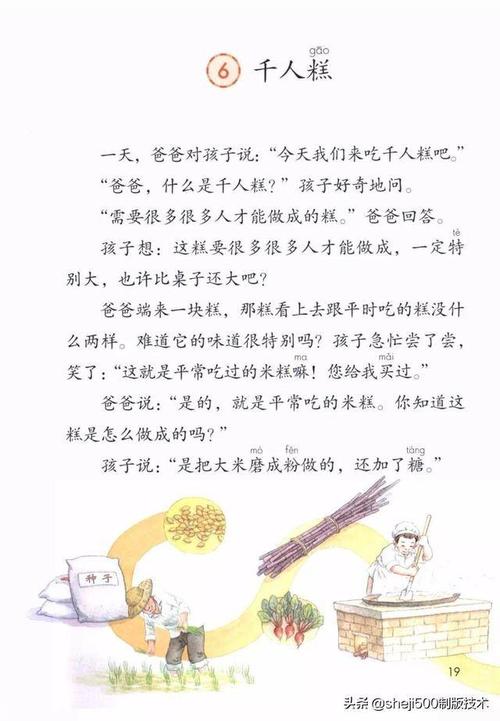 gāo
6 千人糕
一天，爸爸对孩子说：“今天我们来吃千人糕吧。”
“爸爸，什么是千人糕？”孩子好奇地问。
“需要很多很多人才能做成的糕。”爸爸回答。
tè
孩子想：这糕要很多很多人才能做成，一定特
别大，也许比桌子还大吧？
爸爸端来一块糕，那糕看上去跟平时吃的糕没什
么两样。难道它的味道很特别吗？孩子急忙尝了尝，
ma mǎi
笑了：“这就是平常吃过的米糕嘛！您给我买过。”
爸爸说：“是的，就是平常吃的米糕。你知道这
糕是怎么做成的吗？”
mó fěn táng
孩子说：“是把大米磨成粉做的，还加了糖。”
种子
19
头条 @sheji500制版技术